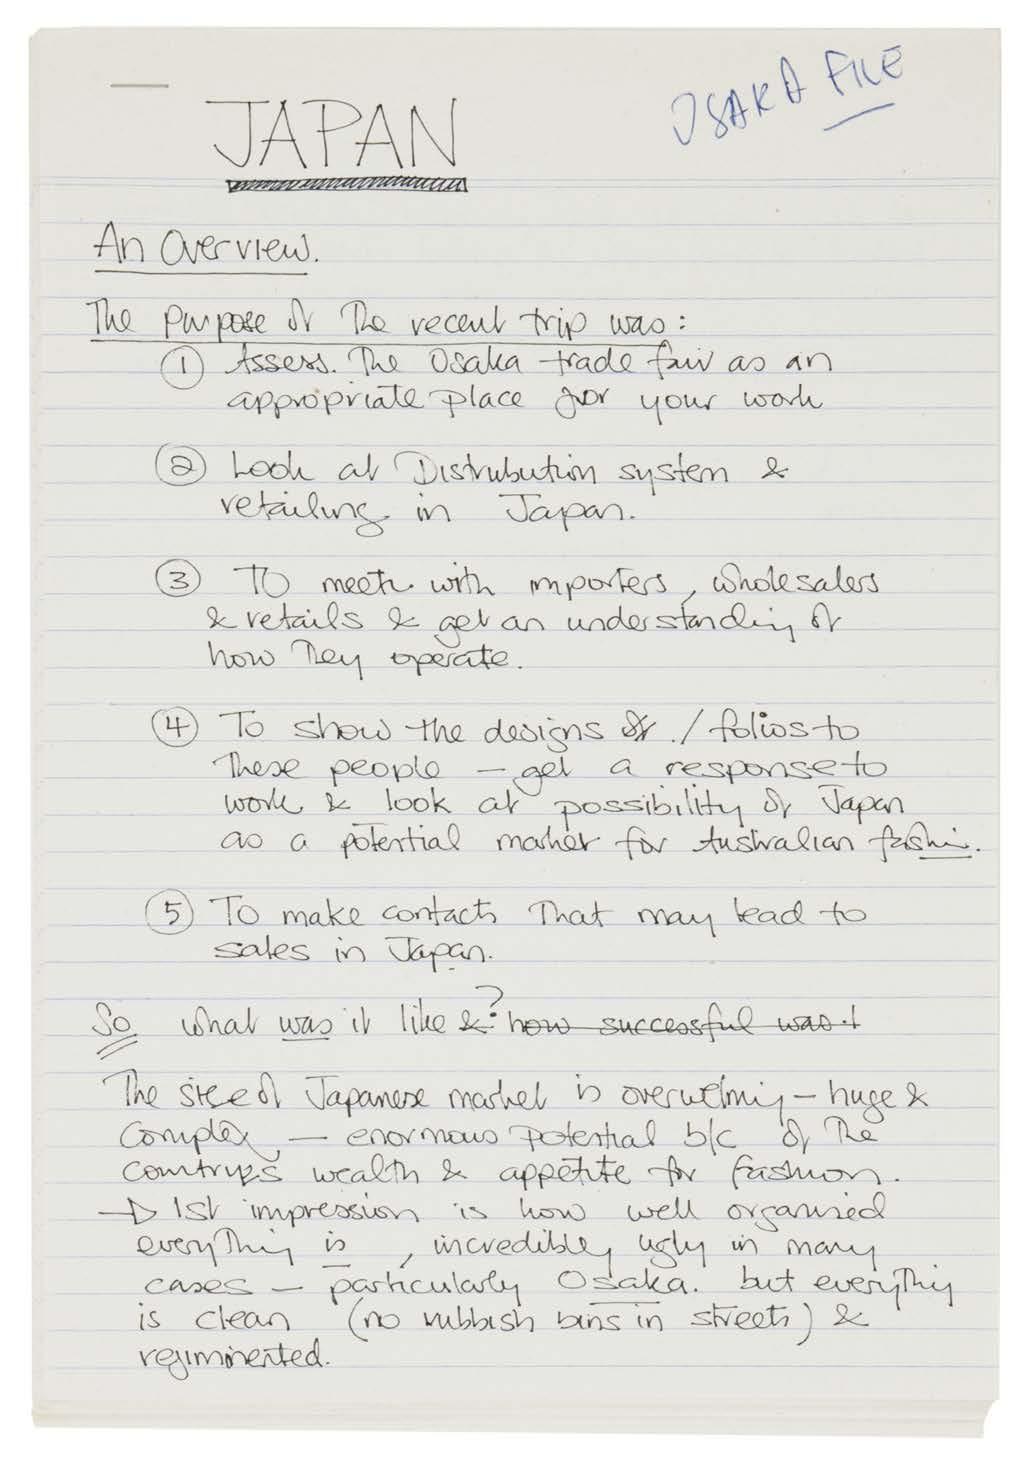 OSAKA FILE
JAPAN
An Overview.
The purpose of The recent trip was:
① Assess. The Osaka trade fair as an
appropriate place for your work
② Look at Distrubution system &
retailing in Japan.
③ To meet with importers, wholesalers
& retails & get an understanding of
how They operate.
④ To show the designs of. / folios to
These people – get a response to
work & look at possibility of Japan
as a potential market for Australian fashion.
⑤ To make contacts That may lead to
sales in Japan.
So what was it like &? how successful was it
The size of Japanese market is overwelming – huge &
Complex – enormous potential b/c of The
countrys wealth & appetite for fashion.
→ 1st impression is how well organised
everyThing is, incredibly ugly in many
cases – particularly Osaka. but everyThing
is clean (no rubbish bins in streets) &
regiminented.